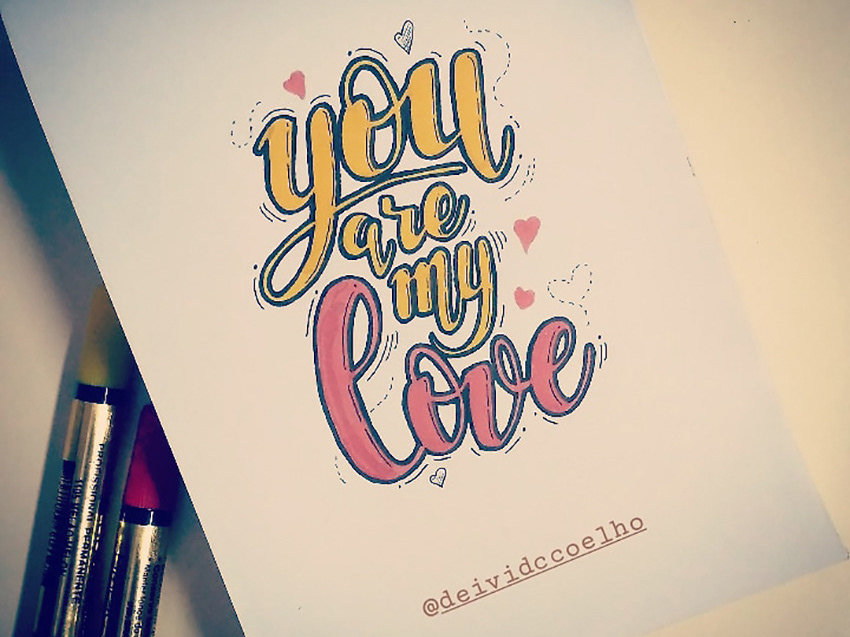 you
are
my
love
@deividccoelho
PERMANENTE